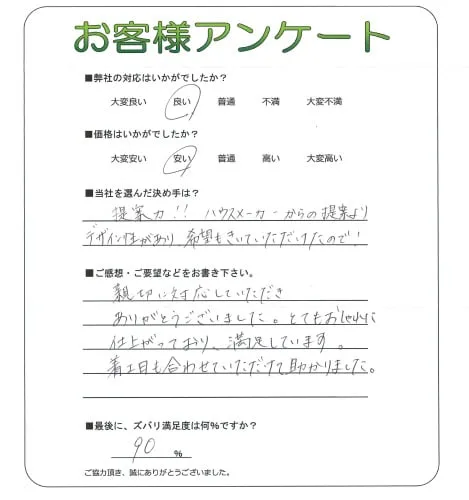 お客様アンケート
■弊社の対応はいかがでしたか？
大変良い 良い 普通 不満 大変不満
■価格はいかがでしたか？
大変安い 安い 普通 高い 大変高い
■当社を選んだ決め手は？
提案力!! ハウスメーカーからの提案より
デザイン性があり 希望もきいていただけたので!
■ご感想・ご要望などをお書き下さい。
親切に対応していただき
ありがとうございました。とてもおしゃれに
仕上がっており、満足しています。
着工日も合わせていただけて助かりました。
■最後に、ズバリ満足度は何％ですか？
90 %
ご協力頂き、誠にありがとうございました。